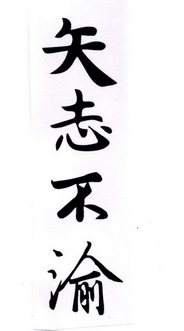 矢志不渝